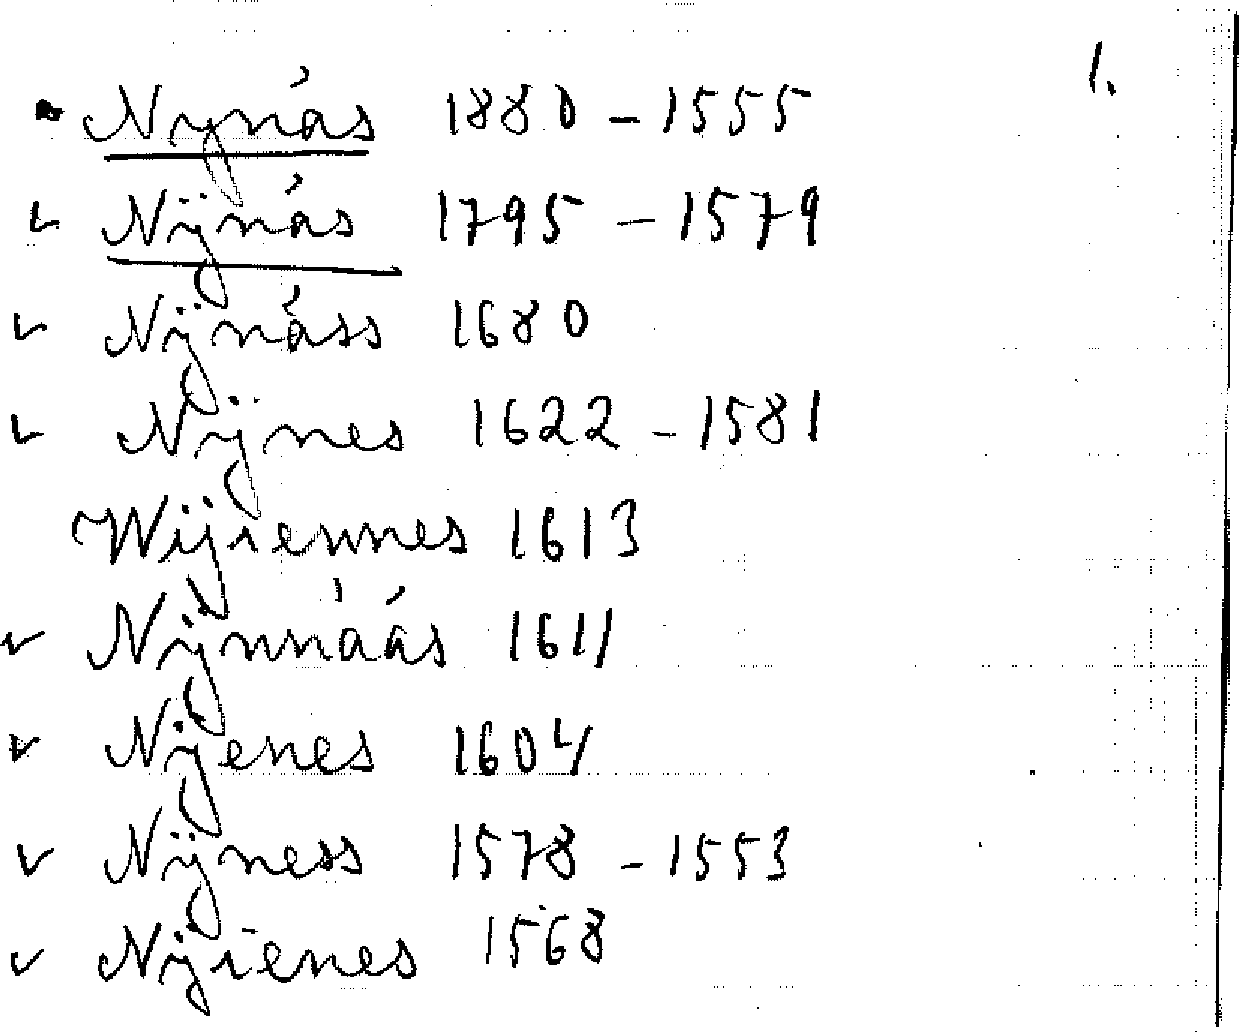 1.
Nynäs 1880 - 1555
Nÿnäs 1795 - 1579
Nÿnäss 1680
Nÿnes 1622 - 1581
Wÿiennes 1613
Nÿnnääs 1611
Nÿenes 1604
Nÿness 1578 - 1553
Nÿienes 1568